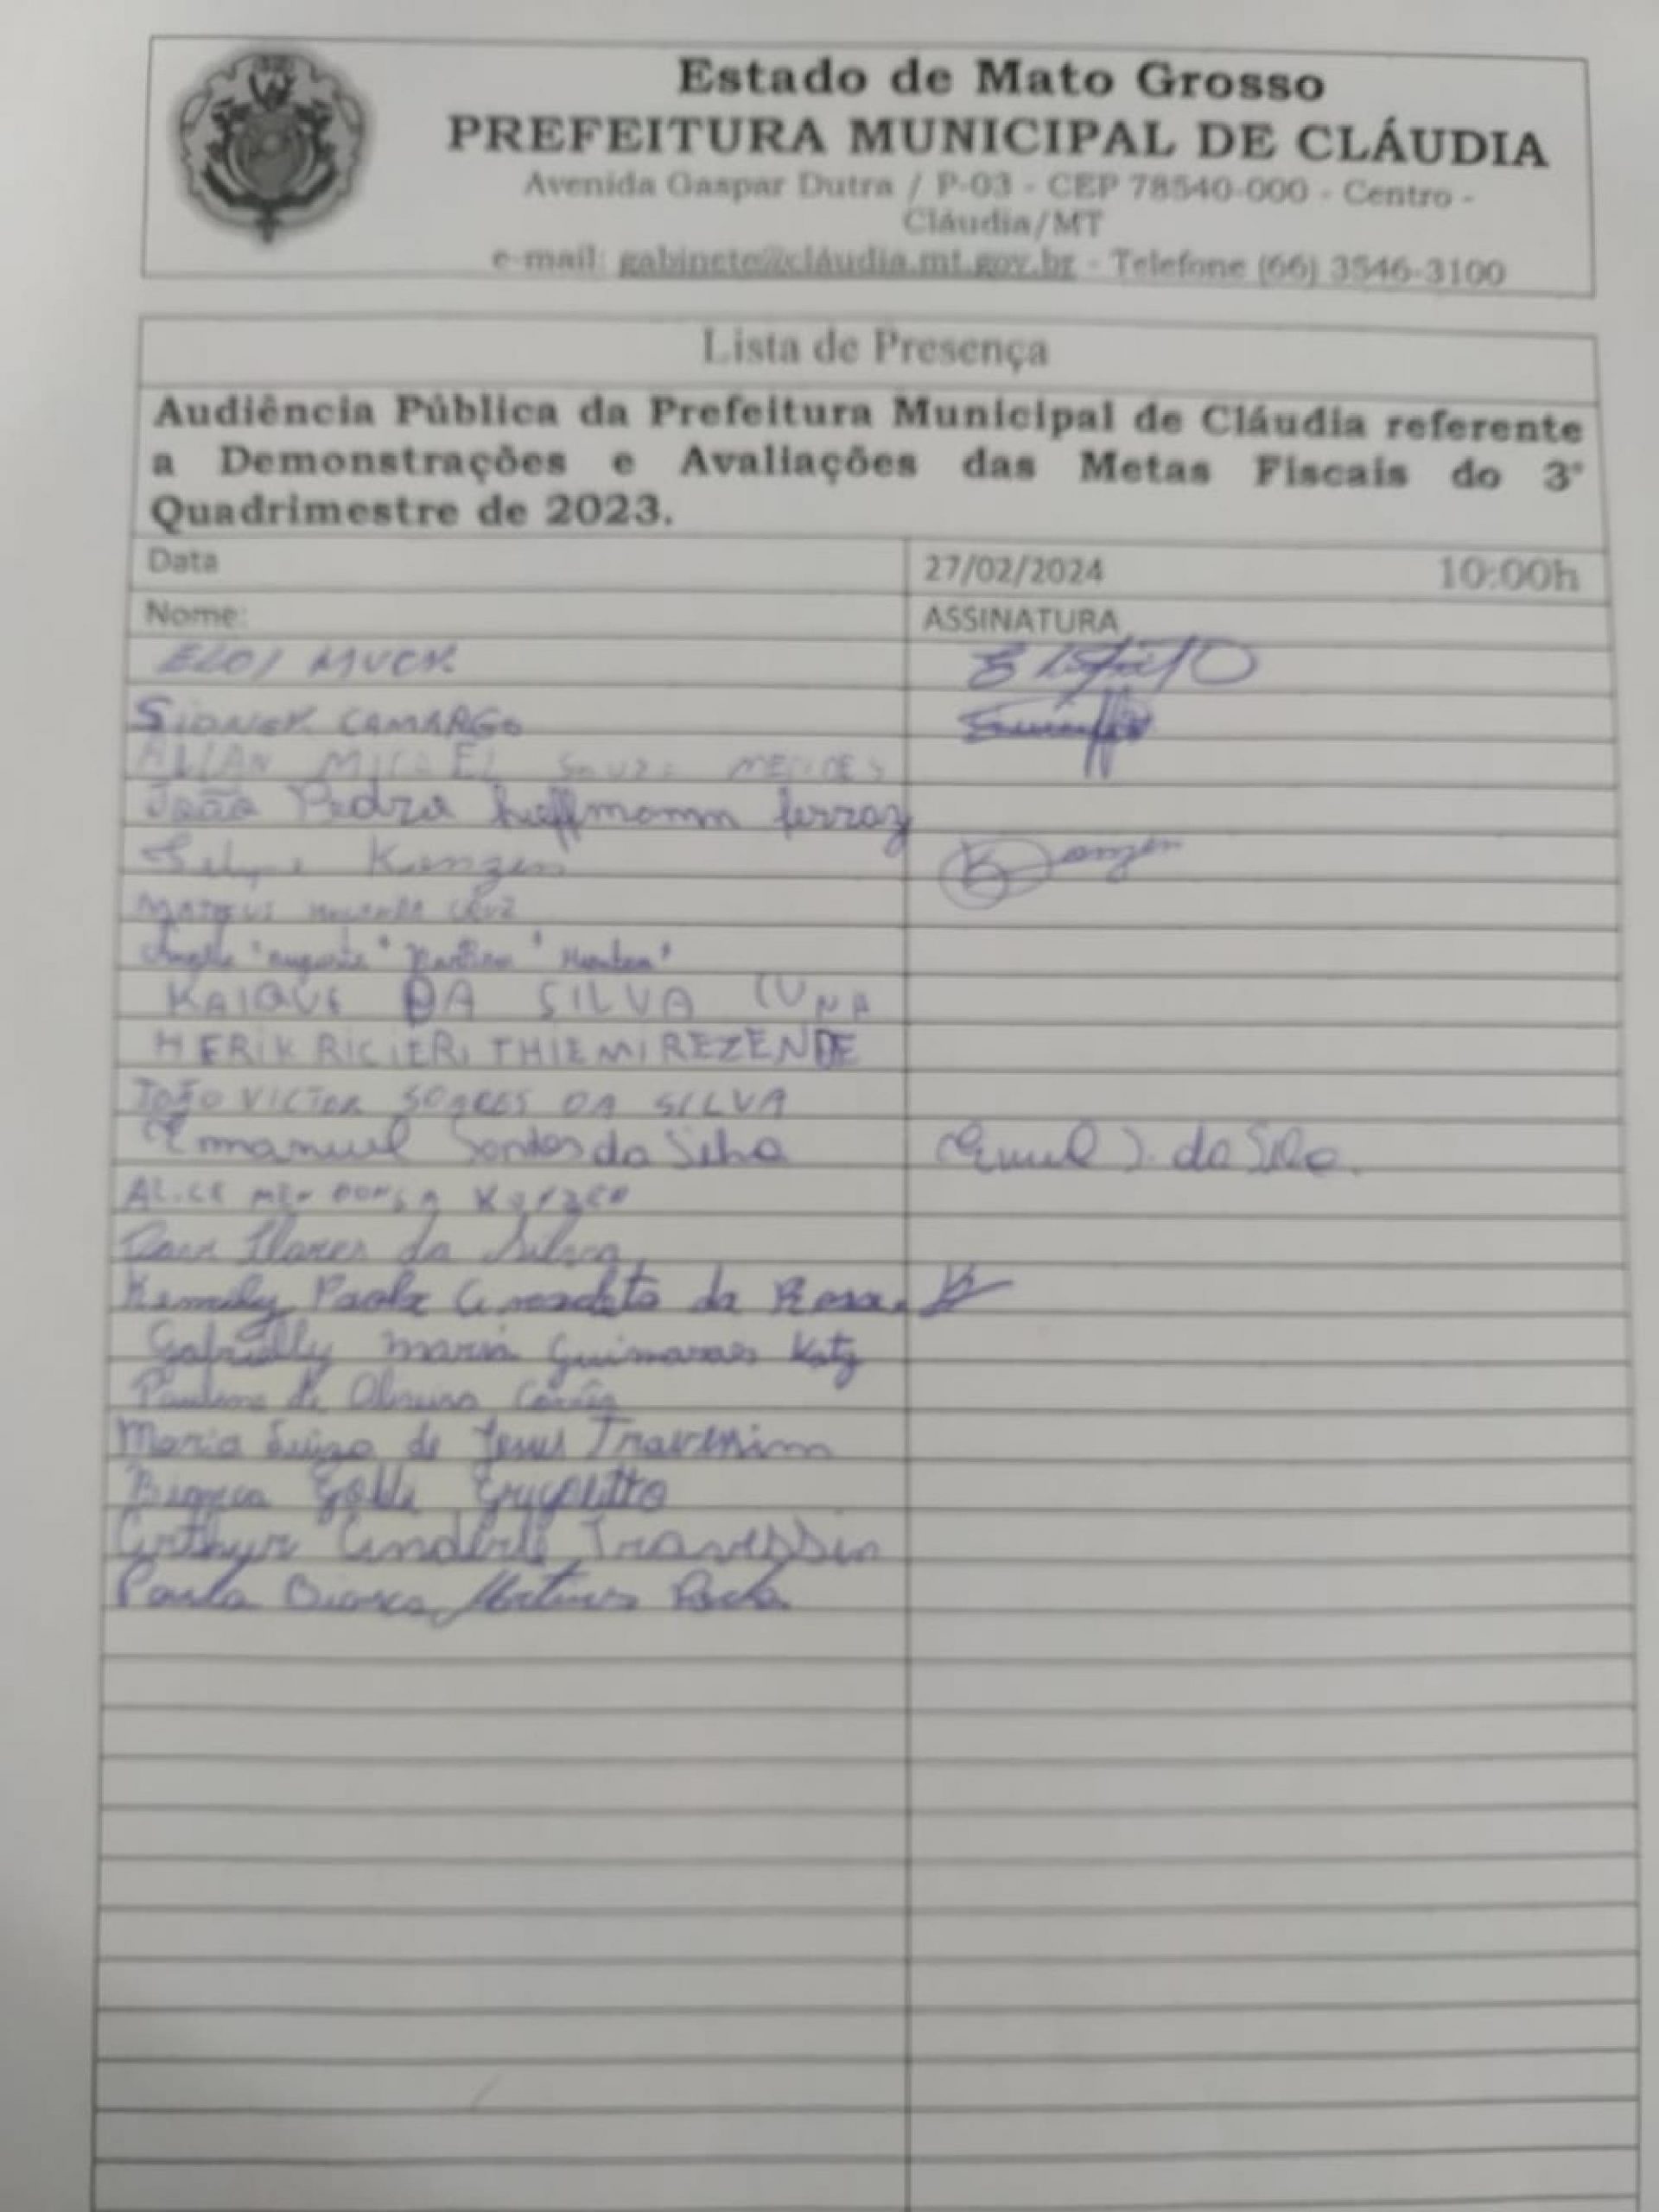 Estado de Mato Grosso
PREFEITURA MUNICIPAL DE CLÁUDIA
Avenida Gaspar Dutra / P-03 - CEP 78540-000 - Centro -
Cláudia/MT
e-mail: gabinete@cláudia.mt.gov.br - Telefone (66) 3546-3100
Lista de Presença
Audiência Pública da Prefeitura Municipal de Cláudia referente
a Demonstrações e Avaliações das Metas Fiscais do 3º
Quadrimestre de 2023.
Data 27/02/2024 10:00h
Nome: ASSINATURA
ELOI MUCK
SIDNEY CAMARGO
ALLAN MICAEL SOUZA MENDES
João Pedro hoffmann ferraz
Felype Kanzen
MATEUS CRUZ
KAIQUE DA SILVA CUNA
HERIK RICIERI THIEMI REZENDE
JOÃO VICTOR SOARES DA SILVA
Emmanuel Santos da Silva da Silva
ALICE MENDONSA
da Silva
Kemily Paola da Rosa.
Gabrielly maria Guimaraes Katz
de Oliveira Corrêa
Maria Luiza de Jesus Travessim
Bianca
Arthur Travessin
Paula Bianca Rocha